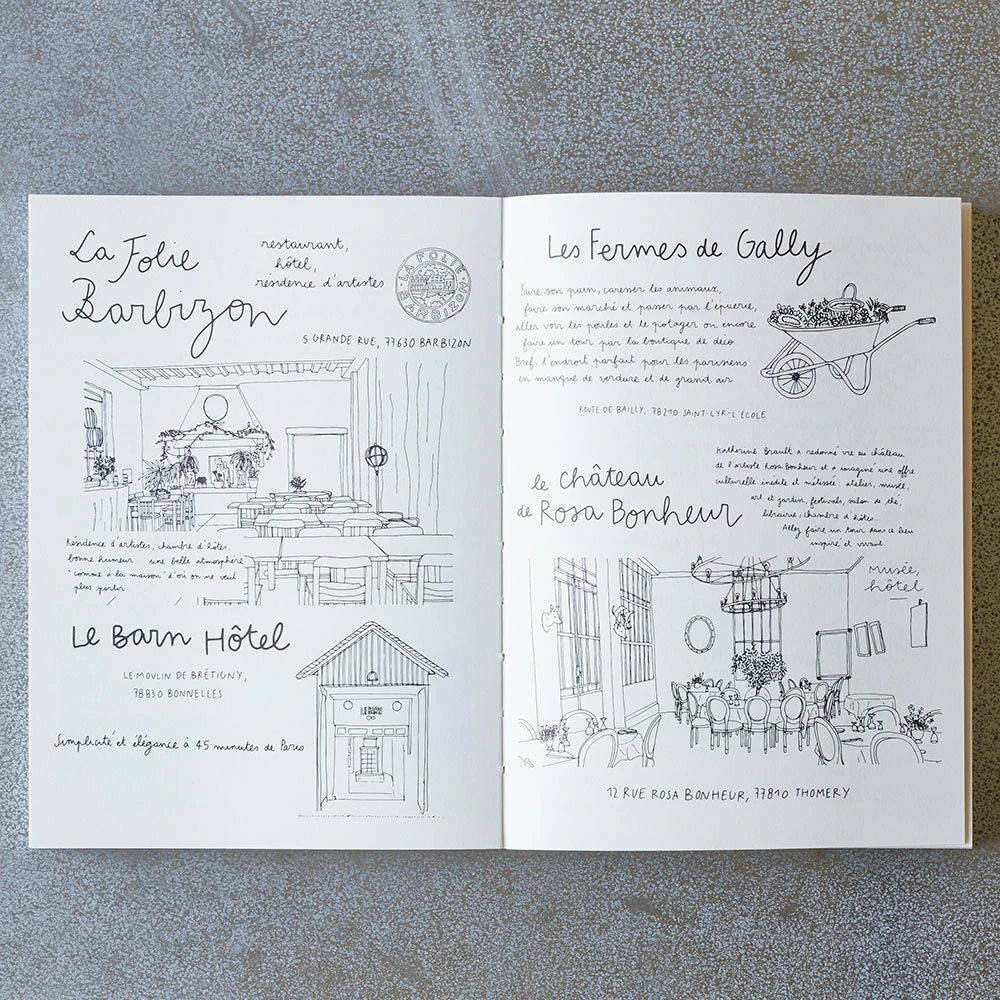 La Folie
Barbizon
restaurant,
hôtel,
résidence d'artistes
LA FOLIE
BARBIZON
5 GRANDE RUE, 77630 BARBIZON
Résidence d'artistes, chambre d'hôtes,
bonne humeur une belle atmosphère
"comme à la maison" d'où on ne veut
plus partir
LE BARN HÔTEL
LE MOULIN DE BRÉTIGNY,
78830 BONNELLES
Simplicité et élégance à 45 minutes de Paris
Les Fermes de Gally
Faire son pain, caresser les animaux,
faire son marché et passer par l'épicerie,
aller voir les poules et le potager ou encore
faire un tour par la boutique de déco
Bref, l'endroit parfait pour les parisiens
en manque de verdure et de grand air
ROUTE DE BAILLY, 78210 SAINT-CYR-L'ÉCOLE
le Château
de Rosa Bonheur
Katherine Brault a redonné vie au château
de l'artiste Rosa Bonheur et a imaginé une offre
culturelle inédite et métissée: atelier, musée,
art et jardin, festivals, salon de thé,
librairie, chambre d'hôtes...
Allez faire un tour dans ce lieu
inspiré et vivant
Musée,
hôtel
12 RUE ROSA BONHEUR, 77810 THOMERY